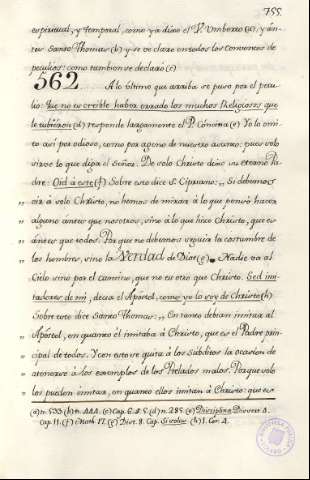 755.
espiritual, y temporal, como ya dixo el P. Umberto (a), y an-
tes Santo Thomas (b) y se ve claro en todos los Conventos de
peculios: como tambien se declaró (c)
562 A lo último que arriba se puso por el pecu-
lio: Que no es creible haber errado los muchos Religiosos que
le tubieron (d) responde largamente el P. Cóncina (e) Yo lo omi-
to asi por odioso, como por ageno de nuestro asunto: pues solo
sirve lo que diga el Señor. De solo Christo dixo su eterno Pa-
dre: Oid á este (f) Sobre esto dice S. Cipriano: „ Si debemos
„ oir á solo Christo, no hemos de mirar á lo que pensó hacer
„ alguno ántes que nosotros, sino á lo que hizo Christo, que es
„ ántes que todos. Porque no debemos seguir la costumbre de
„ los hombres, sino la Verdad de Dios (g). Nadie va al
Cielo sino por el camino, que no es otro que Christo. Sed imi-
tadores de mi, decia el Apóstol, como yo lo soy de Christo (h)
Sobre este dice Santo Thomas: „ En tanto debian imitar al
„ Apóstol, en quanto él imitaba á Christo, que es el Padre prin-
„ cipal de todos. Y con esto se quita á los Súbditos la ocasion de
„ atenerse á los exemplos de los Prelados malos. Porque solo
„ los pueden imitar, en quanto ellos imitan á Christo: que es
(a) n. 533 (b) n. 444. (c) Cap. 6. §. 5. (d) n. 285. (e) Disciplina Disert. 4.
Cap. 11. (f) Math. 17. (g) Dist. 8. Cap. Si solus (h) 1. Cor. 4.